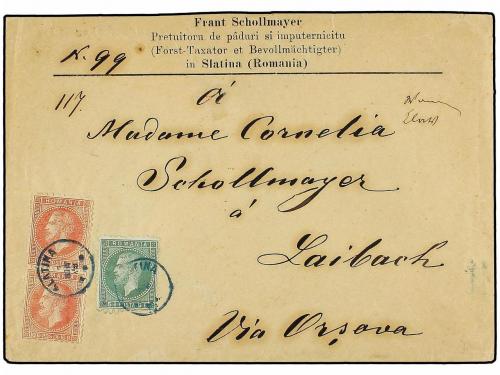 Frant Schollmayer
Pretuitoru de păduri si imputernicitu
(Forst-Taxator et Bevollmächtigter)
in Slatina (Romania)
N. 99
117.
à
Madame Cornelia
Schollmayer
à
Laibach
Via Orșova
ROMANIA
SLATINA
ROMANIA